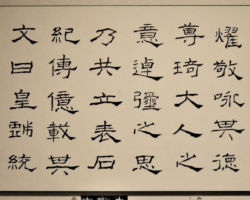 燿敬咏其德
尊琦大人之
意逴彌之思
乃共立表石
紀傳億載其
文曰皇戲統